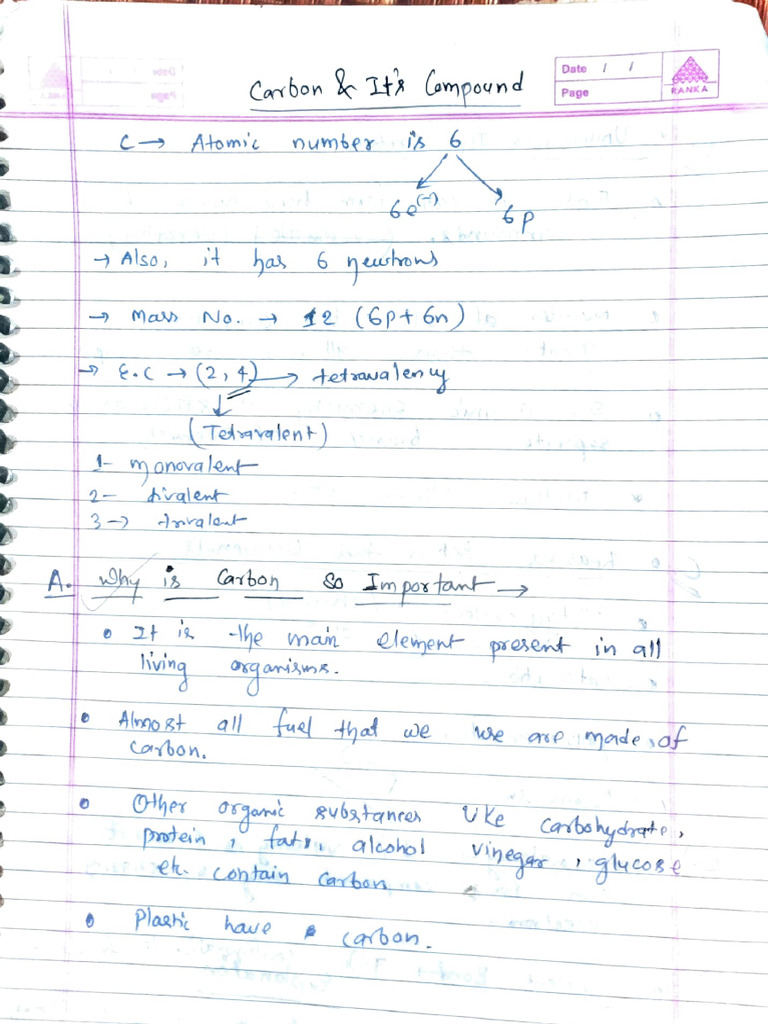 Carbon & It's Compound
Date / /
Page
RANKA
C → Atomic number is 6
6e(-) 6p
→ Also, it has 6 neutrons
→ Mass No. → 12 (6p + 6n)
→ E.C → (2, 4) → tetravalency
(Tetravalent)
1- monovalent
2- divalent
3 → trivalent
A. Why is Carbon so Important →
• It is the main element present in all
living organisms.
• Almost all fuel that we use are made of
carbon.
• Other organic substances like carbohydrate,
protein, fats, alcohol vinegar, glucose
etc. contain carbon
• Plastic have carbon.